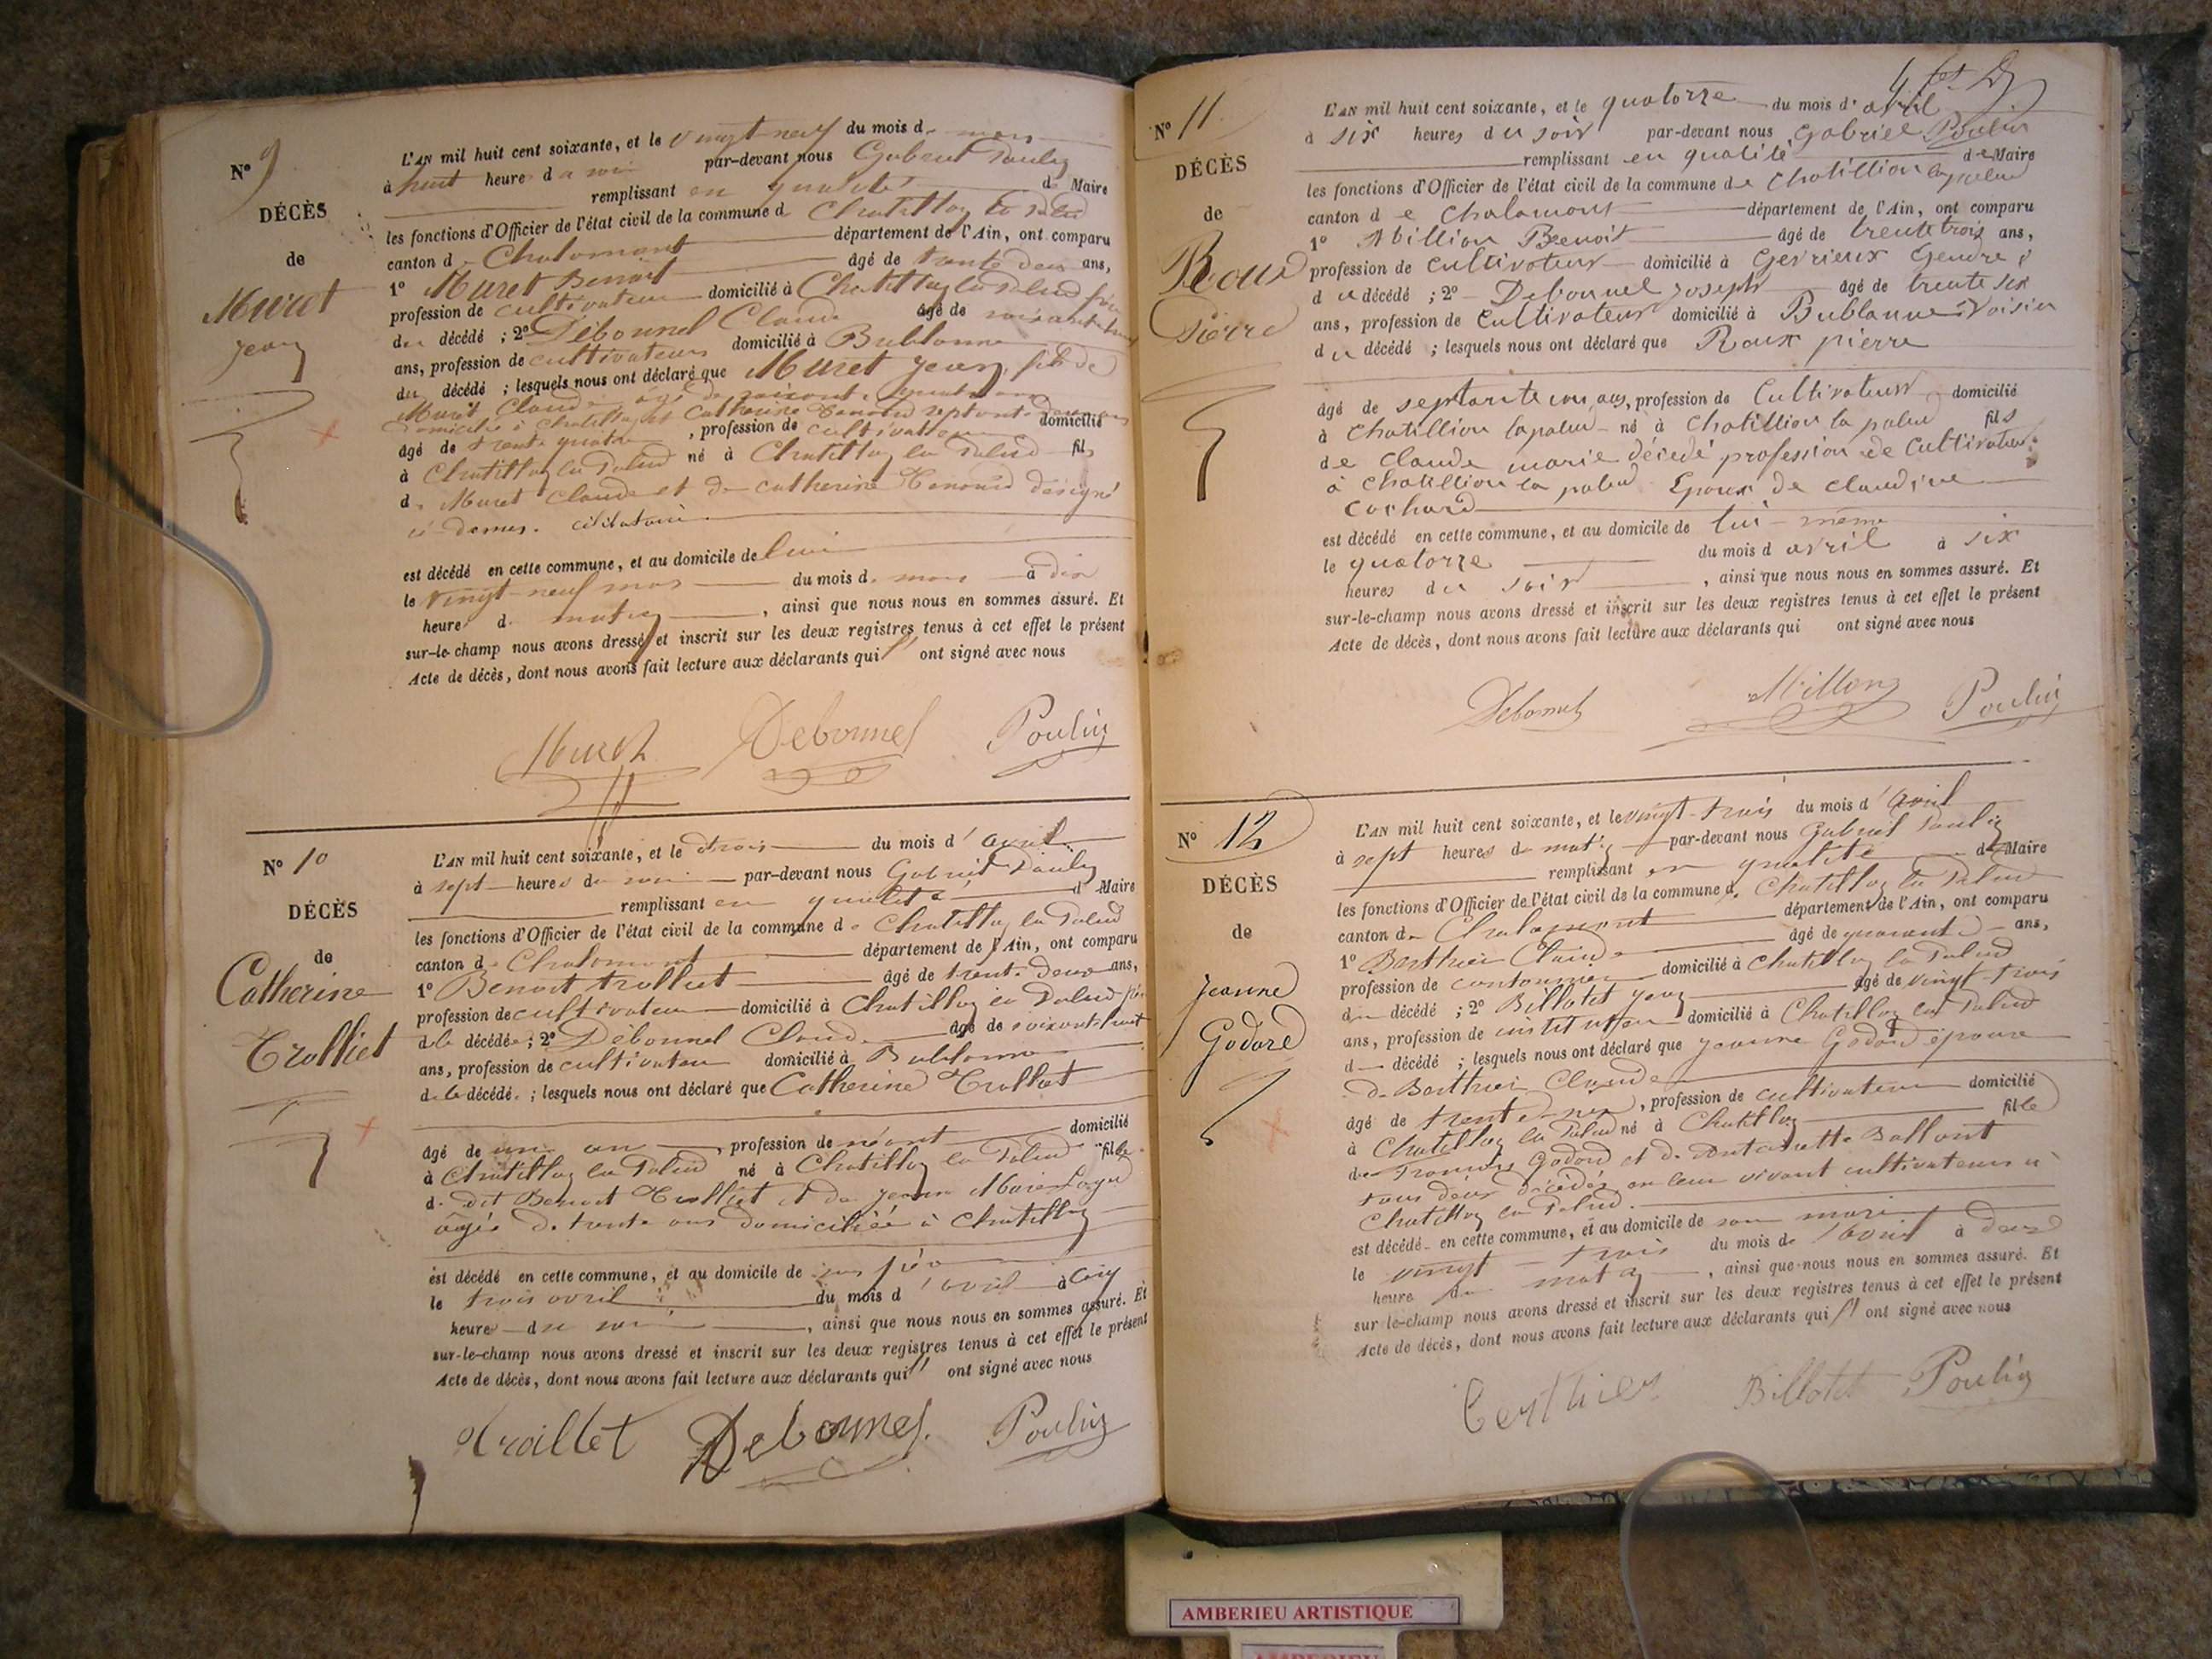 N° 9
DÉCÈS
de
Muret
Jean
L'AN mil huit cent soixante, et le vingt-neuf du mois de mars
à huit heures du soir par-devant nous Gabriel Poulin
remplissant en qualité de Maire
les fonctions d'Officier de l'état civil de la commune de Chatillon la Palud
canton de Chalamont département de l'Ain, ont comparu
1° Muret Benoit âgé de trente deux ans,
profession de cultivateur domicilié à Chatillon la Palud frère
du décédé ; 2° Debonnel Claude âgé de soixante huit
ans, profession de cultivateur domicilié à Bublanne
du décédé ; lesquels nous ont déclaré que Muret Jean, fils de
Muret Claude âgé de soixante quatre ans
domicilié à Chatillon et Catherine septante deux ans
âgé de trente quatre, profession de cultivateur domicilié
à Chatillon la Palud né à Chatillon la Palud fils
de Muret Claude et de Catherine désigné
ci-dessus. célibataire
est décédé en cette commune, et au domicile de lui
le vingt-neuf mars du mois de mars à dix
heures du matin, ainsi que nous nous en sommes assuré. Et
sur-le-champ nous avons dressé et inscrit sur les deux registres tenus à cet effet le présent
Acte de décès, dont nous avons fait lecture aux déclarants qui ont signé avec nous
Muret Debonnel Poulin
N° 10
DÉCÈS
de
Catherine
Trolliet
L'AN mil huit cent soixante, et le trois du mois d'avril
à sept heures du soir par-devant nous Gabriel Poulin
remplissant en qualité d Maire
les fonctions d'Officier de l'état civil de la commune de Chatillon la Palud
canton de Chalamont département de l'Ain, ont comparu
1° Benoit Trolliet âgé de trente deux ans,
profession de cultivateur domicilié à Chatillon la Palud père
de la décédée ; 2° Debonnel Claude âgé de soixante huit
ans, profession de cultivateur domicilié à Bublanne
de la décédée ; lesquels nous ont déclaré que Catherine Trolliet
âgé de un an, profession de néant domicilié
à Chatillon la Palud né à Chatillon la Palud fille
de dit Benoit Trolliet et de Jeanne Marie
âgée de trente ans domiciliée à Chatillon
est décédé en cette commune, et au domicile de son père
le trois avril du mois d'avril à cinq
heures du soir, ainsi que nous nous en sommes assuré. Et
sur-le-champ nous avons dressé et inscrit sur les deux registres tenus à cet effet le présent
Acte de décès, dont nous avons fait lecture aux déclarants qui ont signé avec nous
Trolliet Debonnel Poulin
N° 11
DÉCÈS
de
Roux
Pierre
L'AN mil huit cent soixante, et le quatorze du mois d'avril
à six heures du soir par-devant nous Gabriel Poulin
remplissant en qualité de Maire
les fonctions d'Officier de l'état civil de la commune de Chatillion lapalud
canton de Chalamont département de l'Ain, ont comparu
1° Million Benoit âgé de trente trois ans,
profession de cultivateur domicilié à Gevrieux Gendre
du décédé ; 2° Debonnel Joseph âgé de trente six
ans, profession de Cultivateur domicilié à Bublanne Voisin
du décédé ; lesquels nous ont déclaré que Roux pierre
âgé de septante un ans, profession de Cultivateur domicilié
à Chatillion lapalud né à Chatillion la palud fils
de Claude marie décédé profession de Cultivateur
à Chatillion la palud Epoux de claudine
Cochard
est décédé en cette commune, et au domicile de lui-même
le quatorze du mois d avril à six
heures du soir, ainsi que nous nous en sommes assuré. Et
sur-le-champ nous avons dressé et inscrit sur les deux registres tenus à cet effet le présent
Acte de décès, dont nous avons fait lecture aux déclarants qui ont signé avec nous
Debonnel Millon Poulin
N° 12
DÉCÈS
de
Jeanne
Godard
L'AN mil huit cent soixante, et le vingt-trois du mois d'avril
à sept heures du matin par-devant nous Gabriel Poulin
remplissant en qualité de Maire
les fonctions d'Officier de l'état civil de la commune de Chatillon la Palud
canton de Chalamont département de l'Ain, ont comparu
1° Berthier Claude âgé de quarante ans,
profession de cantonnier domicilié à Chatillon la Palud
du décédé ; 2° Billotet Jean âgé de vingt-trois
ans, profession de instituteur domicilié à Chatillon la Palud
d décédé ; lesquels nous ont déclaré que Jeanne Godard épouse
de Berthier Claude
âgé de trente, profession de cultivateur domicilié
à Chatillon la Palud né à Chatillon fille
de François Godard et de Antoinette Ballant
tous deux décédés en leur vivant cultivateurs à
Chatillon la Palud.
est décédé en cette commune, et au domicile de son mari
le vingt-trois du mois de avril à deux
heure du matin, ainsi que nous nous en sommes assuré. Et
sur-le-champ nous avons dressé et inscrit sur les deux registres tenus à cet effet le présent
Acte de décès, dont nous avons fait lecture aux déclarants qui ont signé avec nous
Berthier Billotet Poulin
AMBERIEU ARTISTIQUE
AMBERIEU